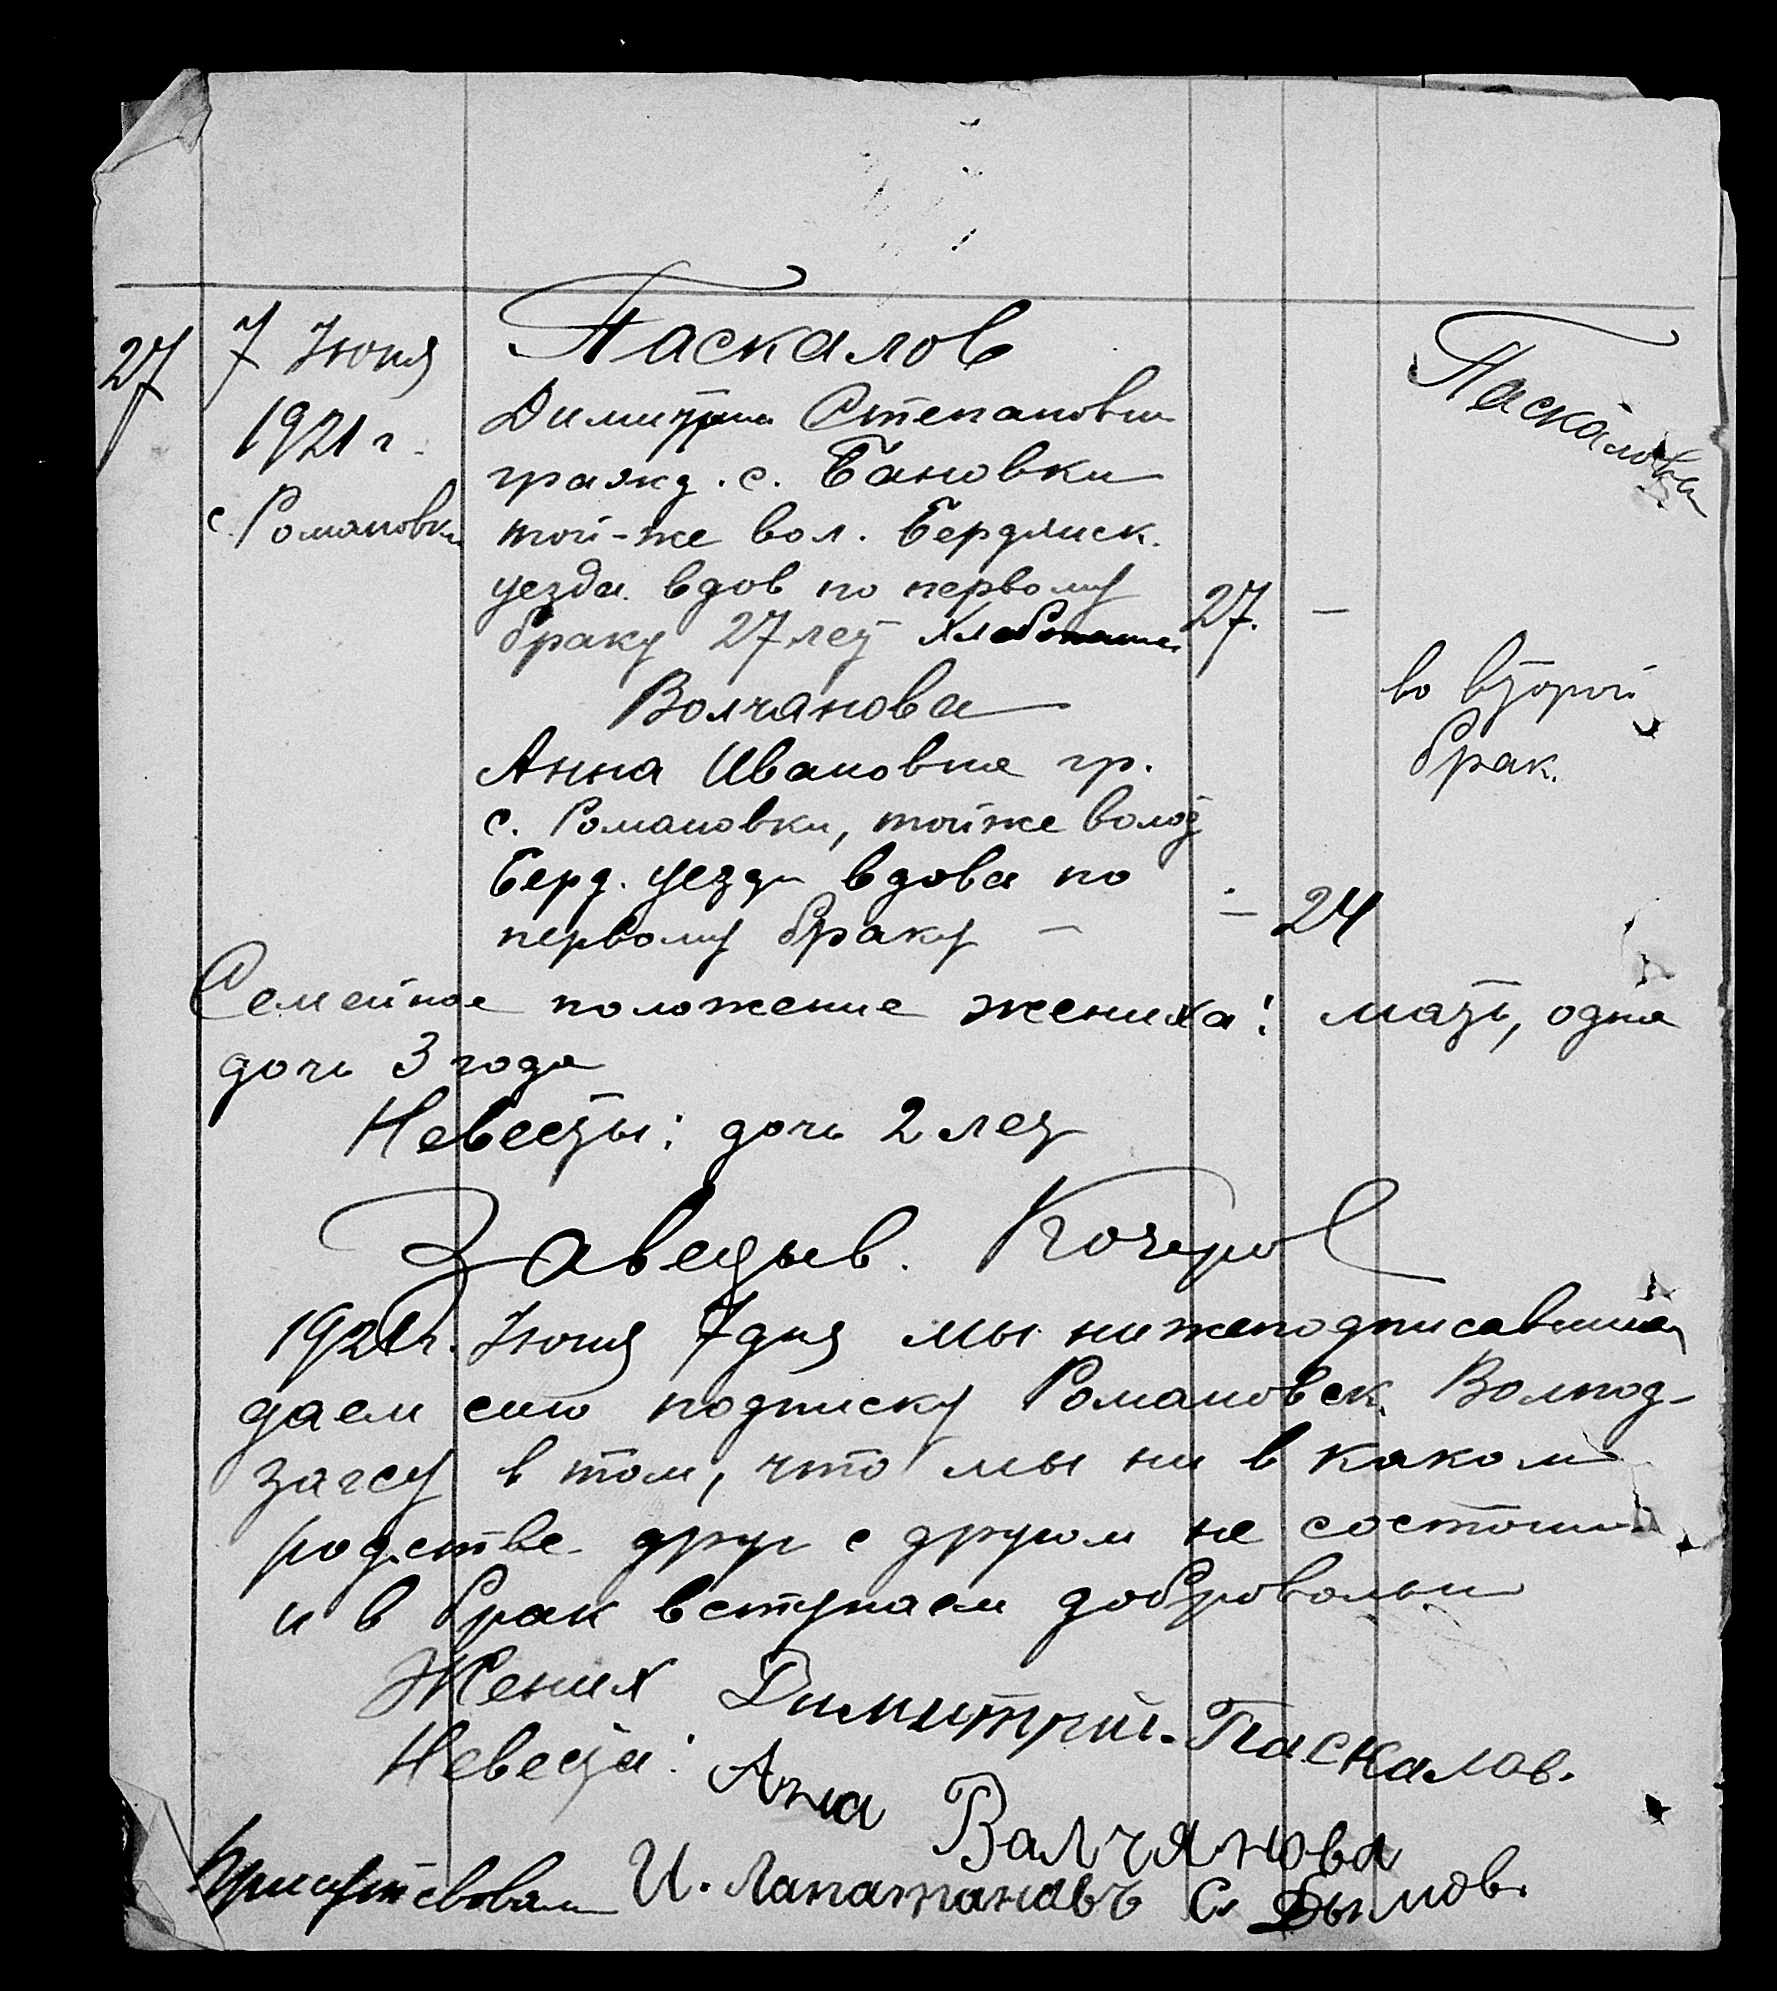 27
7 Июня
1921 г.
с. Романовки
Паскалов
Димитрий Степанович
гражд. с. Бановки
той-же вол. Бердянск.
уезда вдов по первому
браку 27 лет Хлебопаш.
27. —
Волчанова
Анна Ивановна гр.
с. Романовки, тойже волос
Берд. уезда вдова по
первому браку —
— 24
Паскалова
во второй
брак.
Семейное положение жениха: мать, одна
дочь 3 года
Невесты: дочь 2 лет
Заведыв.
1921 г. Июня 7 дня мы нижеподписавшиеся
даем сию подписку Романовск. Волпод-
загсу в том, что мы ни в каком
родстве друг с другом не состоим
и в брак вступаем добровольно
Жених Димитрий Паскалов.
Невеста: Анна Валчянова
Присутствовали И. Лапатановъ С. Дымов.